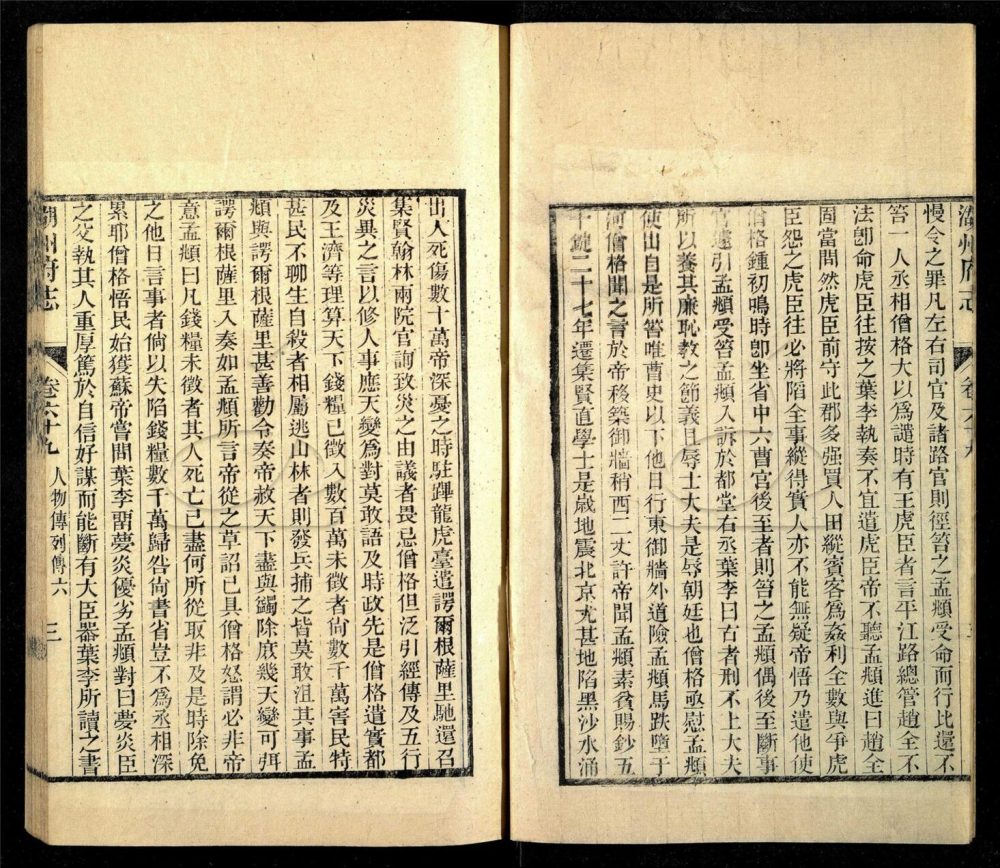 湖州府志
卷六十九
慢令之罪凡左右司官及諸路官則徑笞之孟頫受命而行比還不
笞一人丞相僧格大以爲譴時有王虎臣者言平江路總管趙全不
法卽命虎臣往按之葉李執奏不宜遣虎臣帝不聽孟頫進曰趙全
固當問然虎臣前守此郡多强買人田縱賓客爲姦利全數與爭虎
臣怨之虎臣往必將陷全事縱得實人亦不能無疑帝悟乃遣他使
僧格鍾初鳴時卽坐省中六曹官後至者則笞之孟頫偶後至斷事
官遽引孟頫受笞孟頫入訴於都堂右丞葉李曰古者刑不上大夫
所以養其廉恥教之節義且辱士大夫是辱朝廷也僧格亟慰孟頫
使出自是所笞唯曹史以下他日行東御牆外道險孟頫馬跌墮于
河僧格聞之言於帝移築御牆稍西二丈許帝聞孟頫素貧賜鈔五
十錠二十七年遷集賢直學士是歲地震北京尤甚地陷黑沙水涌
出人死傷數十萬帝深憂之時駐蹕龍虎臺遣諤爾根薩里馳還召
集賢翰林兩院官詢致災之由議者畏忌僧格但泛引經傳及五行
災異之言以修人事應天變爲對莫敢語及時政先是僧格遣實都
及王濟等理算天下錢糧已徵入數百萬未徵者尙數千萬害民特
甚民不聊生自殺者相屬逃山林者則發兵捕之皆莫敢沮其事孟
頫與諤爾根薩里甚善勸令奏帝赦天下盡與蠲除庶幾天變可弭
諤爾根薩里入奏如孟頫所言帝從之草詔已具僧格怒謂必非帝
意孟頫曰凡錢糧未徵者其人死亡已盡何所從取非及是時除免
之他日言事者倘以失陷錢糧數千萬歸咎尙書省豈不爲丞相深
累耶僧格悟民始獲蘇帝嘗問葉李留夢炎優劣孟頫對曰夢炎臣
之父執其人重厚篤於自信好謀而能斷有大臣器葉李所讀之書
湖州府志
卷六十九
人物傳列傳六
三